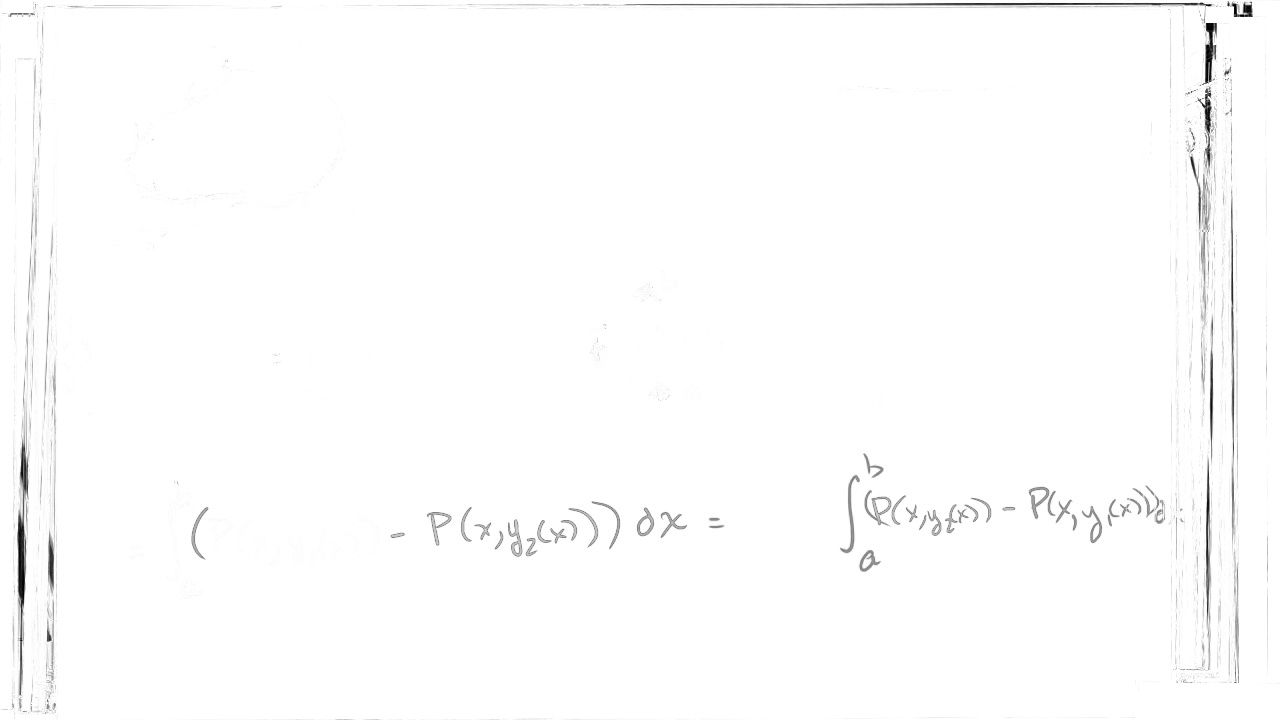 ( - P(x,y₂(x))) dx = ∫ₐᵇ (P(x,y₂(x)) - P(x,y₁(x))) d